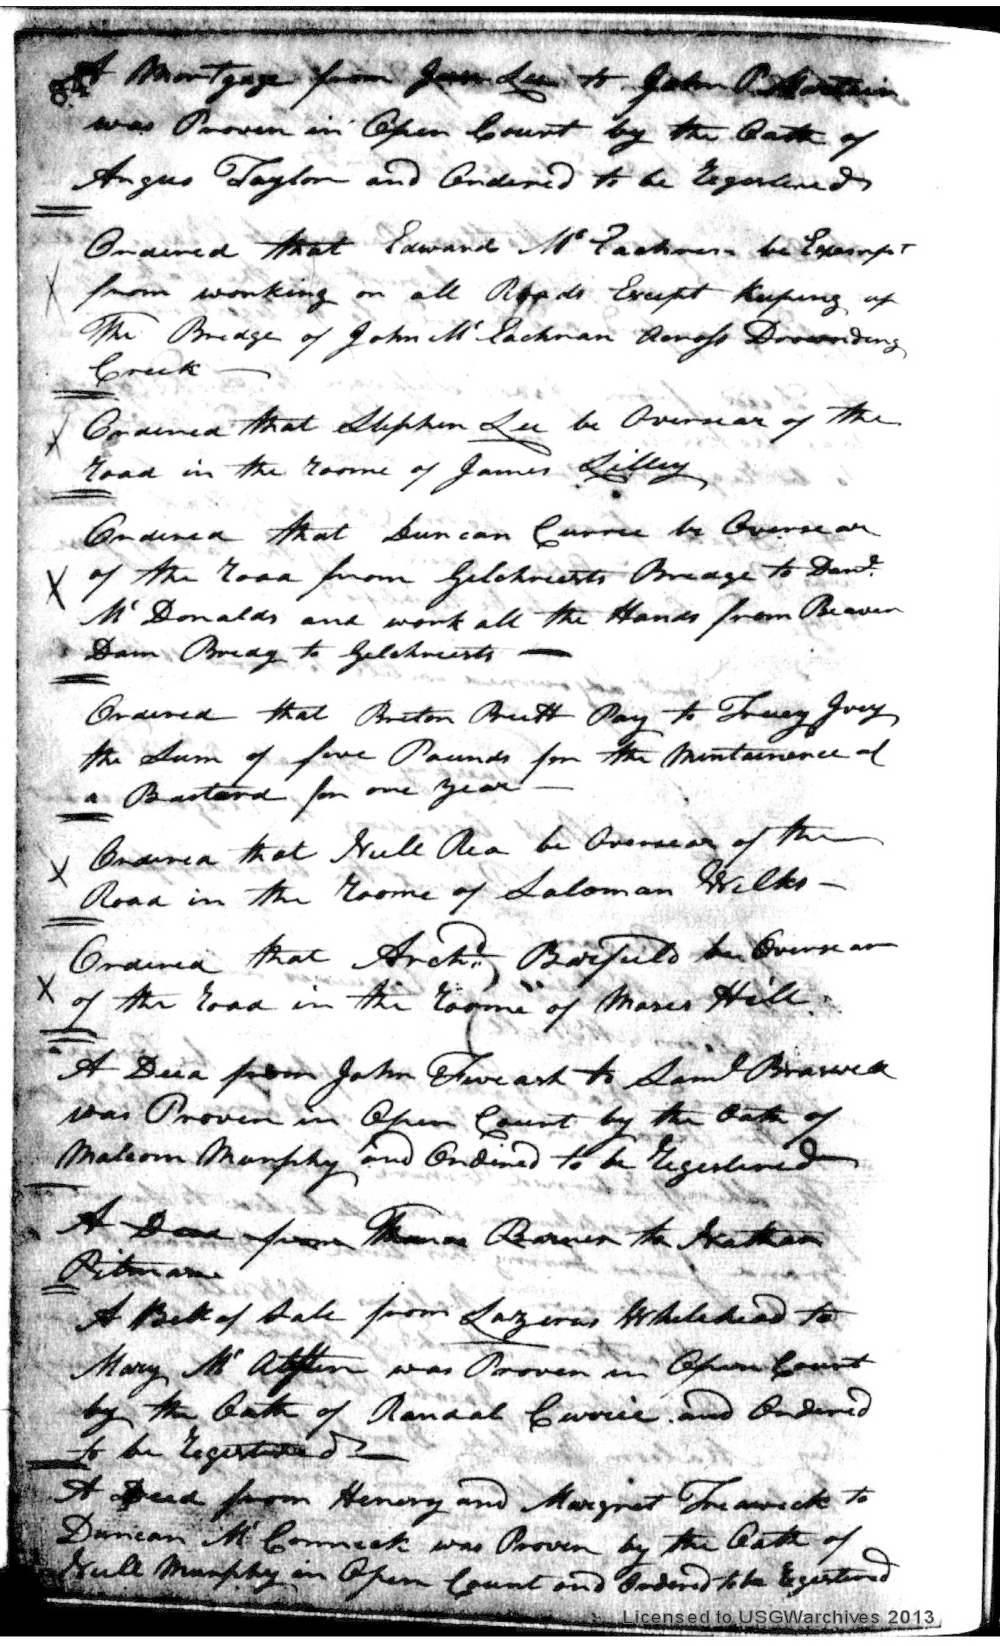 A Mortgage from Lee to John P. Martin
was Proven in Open Court by the Oath of
Angus Taylor and Ordered to be Regestered
Ordered that Edward Mc Eachnern be Exempt
from working on all Roads Except Keeping up
The Bridge of John Mc Eachnan Across Drownding
Creek —
Ordered that Stephen Lee be Oversear of the
road in the roome of James Lilley
Ordered that Duncan Currie be Oversear
of the road from Gilchreests Breage to Danl.
Mc Donalds and work all the Hands from Beaver
Dam Bredg to Gilchreests —
Ordered that Breton Brett Pay to Ivey
the Sum of five Pounds for the Mintainence of
a Bastard for one year —
Ordered that Neill Rea be Oversear of the
Road in the roome of Soloman Wilks —
Ordered that Archd. Barfield be Oversear
of the road in the roome of Moses Hill.
A Deed from John Fiveash to Saml Braswell
was Proven in Open Court by the Oath of
Malcom Murphy and Ordered to be Regestered
A Deed from Thomas Barnes to Nathan
Pitman
A Bill of Sale from Lazerus Whitehead to
Mary Mc was Proven in Open Court
by the Oath of Randal Currie and Ordered
to be Regestered —
A Deed from Henery and Margret to
Duncan Mc Cormick was Proven by the Oath of
Neill Murphy in Open Court and Ordered to be Regestered
Licensed to USGWarchives 2013